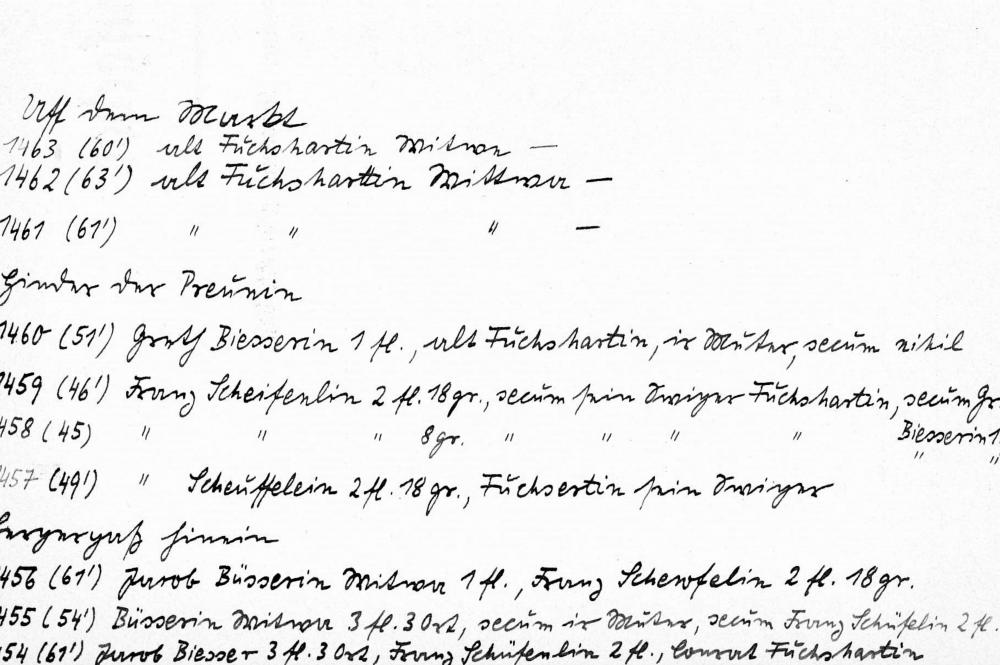 Uff dem Markt
1463 (60') alt Fuchshartin Witwe —
1462 (63') alt Fuchsharttin Wittwa —
1461 (61') " " " —
Hinder der Preunin
1460 (51') Greth Biesserin 1 fl., alt Fuchshartin, ir Muter, secum nihil
1459 (46') Franz Scheifenlin 2 fl. 18 gr., secum sein Swiger Fuchshartin, secum Gr
458 (45) " " " 8 gr. " " " " Biesserin 1
" "
457 (49') " Scheuffelein 2 fl. 18 gr., Fuchsertin sein Swiger
hinein
456 (61') Jacob Büsserin Witwa 1 fl., Franz Schewfelin 2 fl. 18 gr.
455 (54') Büsserin Witwa 3 fl. 3 Ort, secum ir Muter, secum Franz Schüfelin 2 fl.
54 (61') Jacob Biesser 3 fl. 3 Ort, Franz Schüfenlin 2 fl., Conrat Fuchshartin